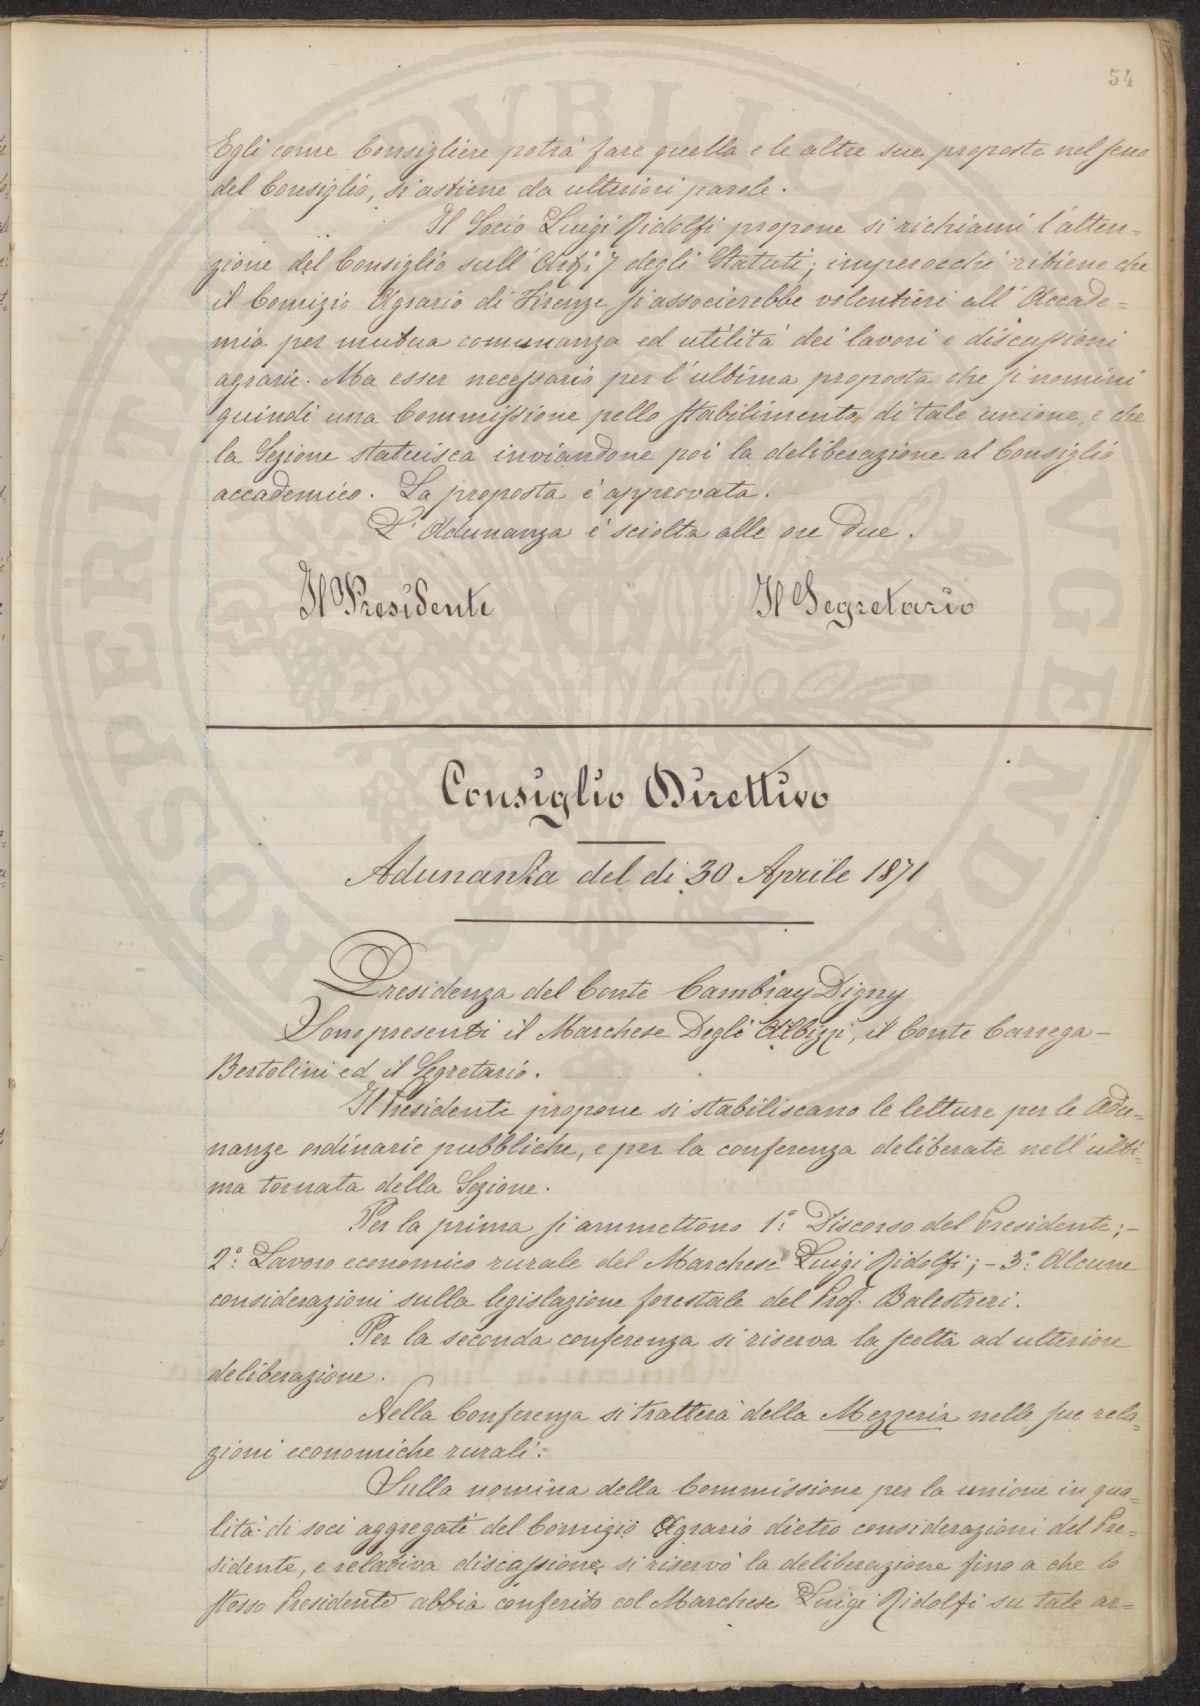 54
Egli come Consigliere potrà fare quella e le altre sue proposte nel seno
del Consiglio, si astiene da ulteriori parole.
Il Socio Luigi Ridolfi propone si richiami l'atten=
zione del Consiglio sull' Art: 7 degli Statuti; imperocchè ritiene che
il Comizio Agrario di Firenze si associerebbe volentieri all' Accade=
mia per mutua comunanza ed utilità dei lavori e discussioni
agrarie. Ma esser necessario per l'ultima proposta che si nomini
quindi una Commissione pello stabilimento di tale unione, e che
la Sezione statuisca inviandone poi la deliberazione al Consiglio
accademico. La proposta è approvata.
L'Adunanza è sciolta alle ore due.
Il Presidente Il Segretario
Consiglio Direttivo
Adunanza del dì 30 Aprile 1871
Presidenza del Conte Cambray Digny
Sono presenti il Marchese Degli Albizzi, il Conte Carrega-
Bertolini ed il Segretario.
Il Presidente propone si stabiliscano le letture per le Adu=
nanze ordinarie pubbliche, e per la conferenza deliberate nell'ulti=
ma tornata della Sezione.
Per la prima si ammettono 1°: Discorso del Presidente; -
2°: Lavoro economico rurale del Marchese Luigi Ridolfi; - 3°: Alcune
considerazioni sulla legislazione forestale del Prof. Balestreri.
Per la seconda conferenza si riserva la scelta ad ulteriore
deliberazione.
Nella Conferenza si tratterà della Mezzeria nelle sue rela=
zioni economiche rurali.
Sulla nomina della Commissione per la unione in qua=
lità di soci aggregati del Comizio Agrario dietro considerazioni del Pre=
sidente, e relativa discussione si riservò la deliberazione fino a che lo
stesso Presidente abbia conferito col Marchese Luigi Ridolfi su tale ar=
PROSPERITATI PVBLICAE AVGENDAE